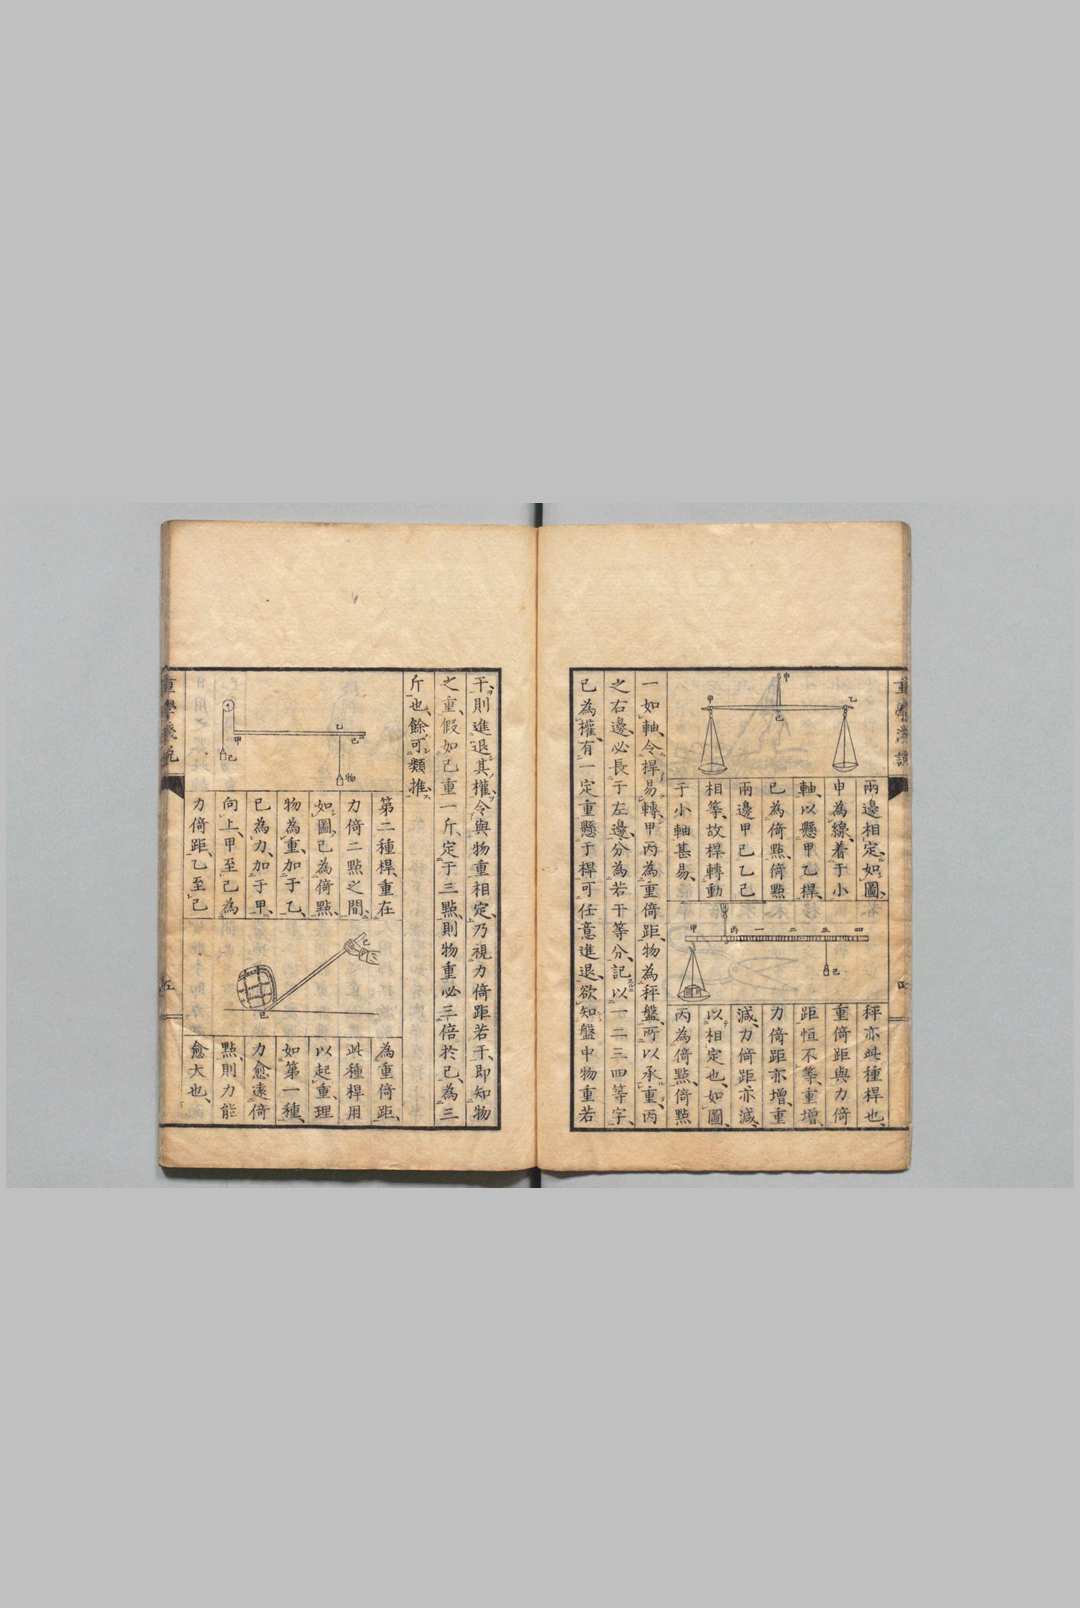 重學淺說
兩邊相定、如圖、
申為線、着于小
軸、以懸甲乙桿、
己為倚點、倚點
兩邊甲己乙己
相等、故桿轉動
于小軸甚易、
申
甲
乙
己
秤亦此種桿也、
重倚距與力倚
距恒不等、重增、
力倚距亦增、重
減、力倚距亦減、
以相定也、如圖、
丙為倚點、倚點
甲
丙
一
二
三
四
己
一如軸、令桿易轉、甲丙為重倚距、物為秤盤、所以承重、丙
之右邊必長于左邊、分為若干等分、記以一二三四等字、
己為權、有一定重懸于桿、可任意進退、欲知盤中物重若
四
干、則進退其權、令與物重相定、乃視力倚距若干、即知物
之重、假如己重一斤、定于三點、則物重必三倍於己、為三
斤也、餘可類推、
第二種桿、重在
力倚二點之間、
如圖、己為倚點、
物為重、加于乙、
巳為力、加于甲、
向上、甲至己為
力倚距、乙至己
甲
乙
己
巳
物
為重倚距、
此種桿用
以起重、理
如第一種、
力愈遠倚
點、則力能
愈大也、
己
重學淺說
五